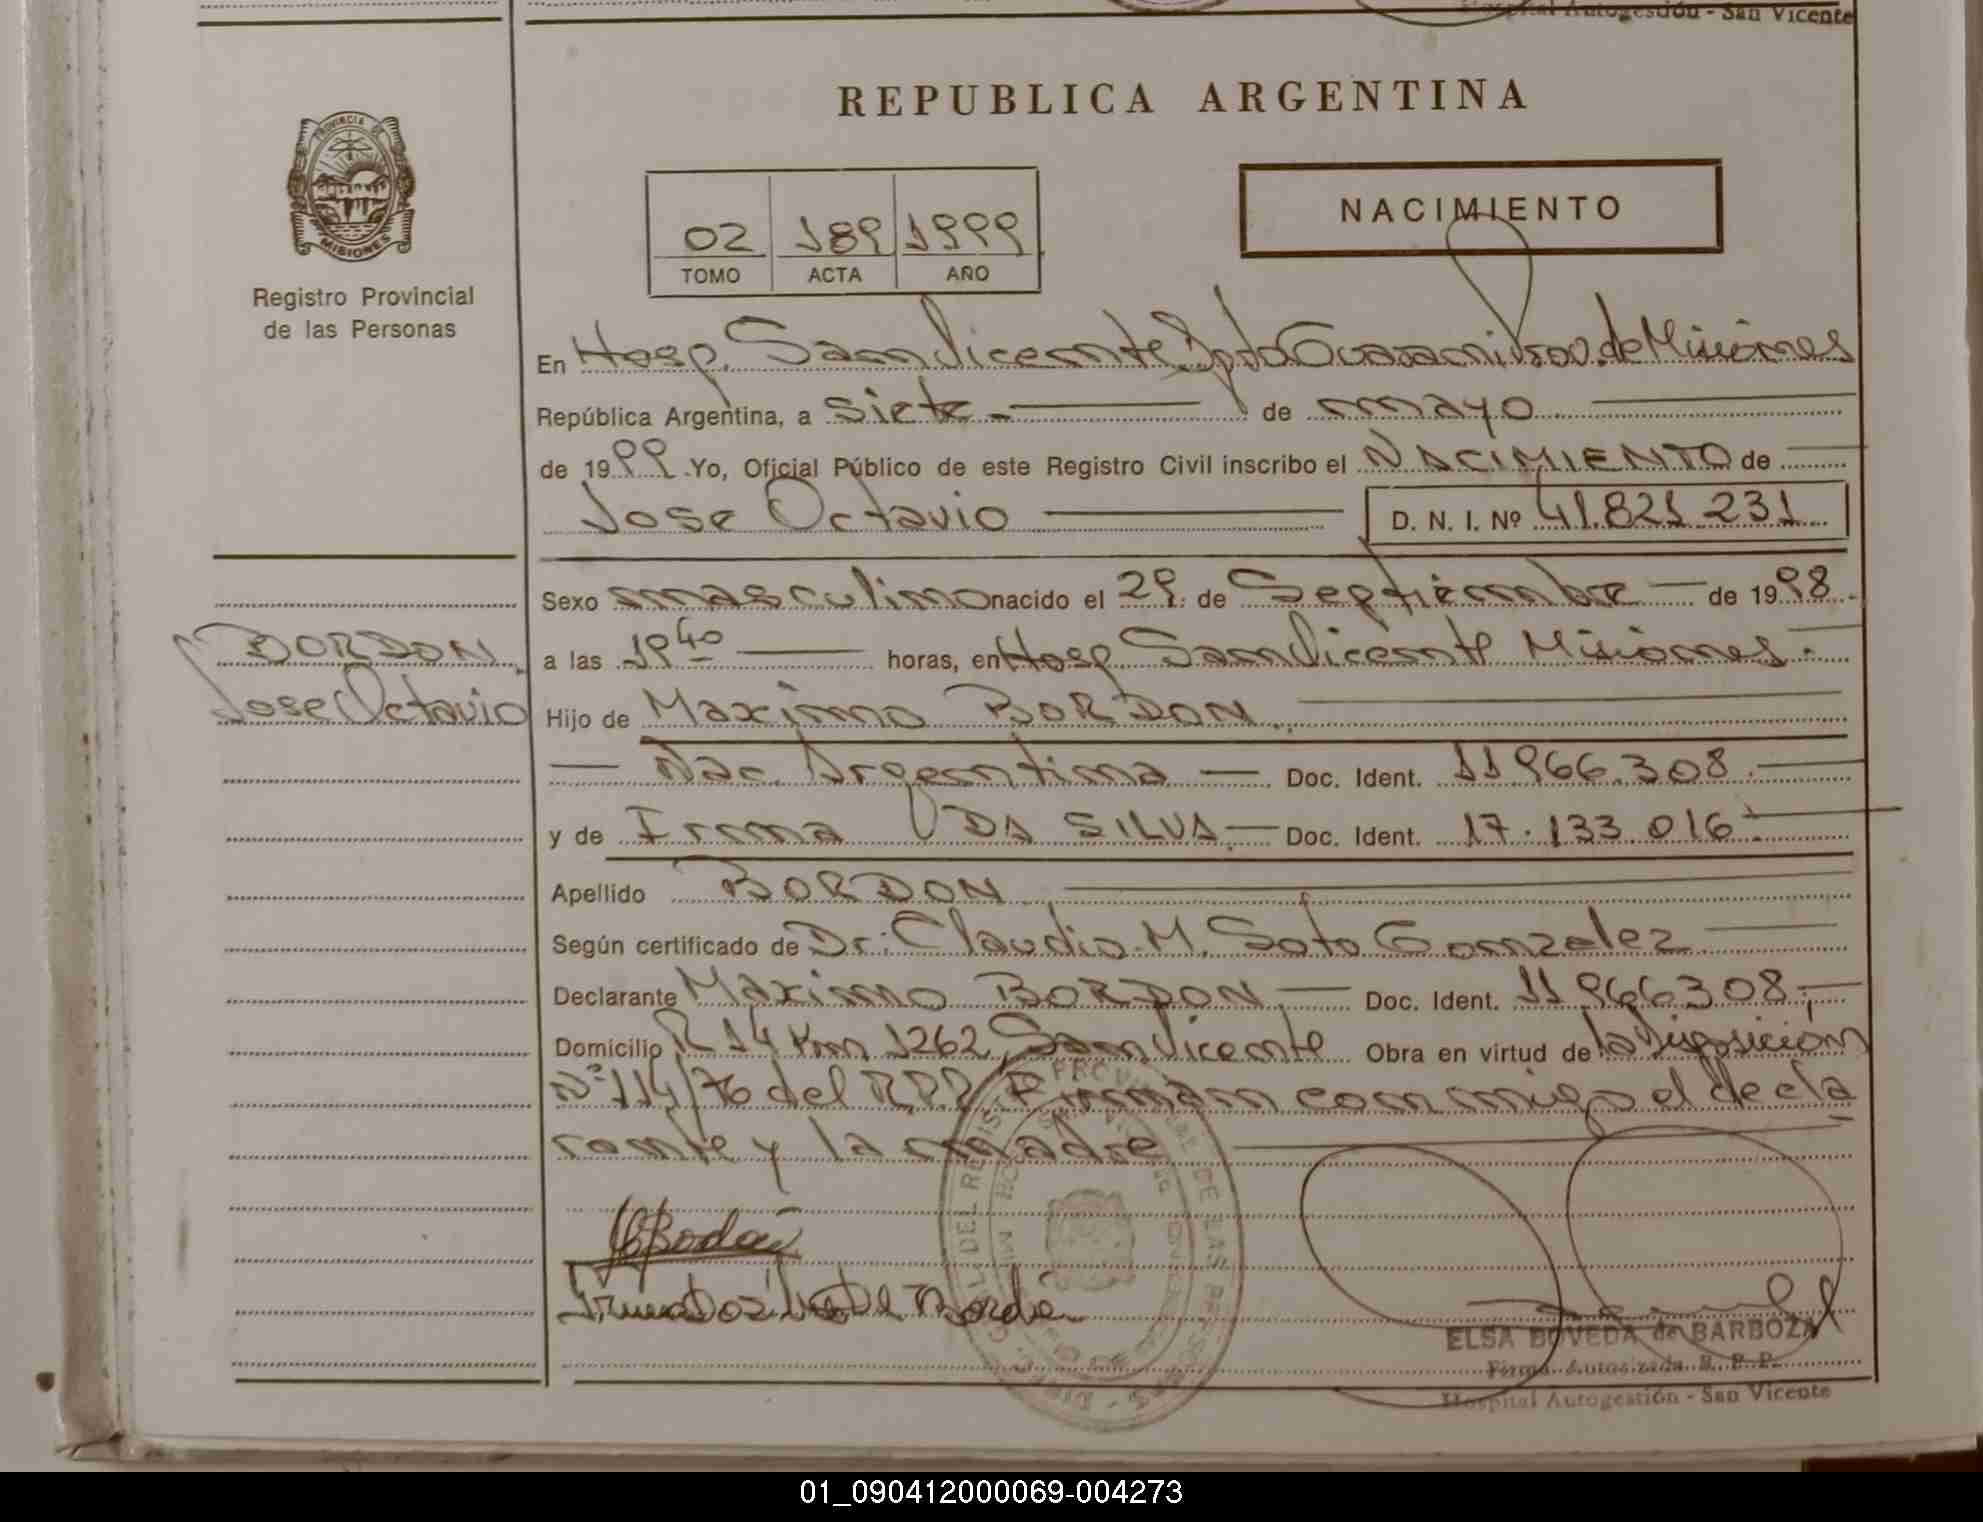 Hospital Autogestión - San Vicente
REPUBLICA ARGENTINA
PROVINCIA DE
MISIONES
Registro Provincial
de las Personas
02 189 1999
TOMO ACTA AÑO
NACIMIENTO
En Hosp. San Vicente Dpto Guarani Prov. de Misiones
República Argentina, a siete - de mayo
de 1999 Yo, Oficial Público de este Registro Civil inscribo el NACIMIENTO de
Jose Octavio D. N. I. Nº 41.821.231
Sexo masculino nacido el 29 de Septiembre - de 1998.
a las 19 40 horas, en Hosp. San Vicente Misiones.-
BORDON
Jose Octavio
Hijo de Maximo BORDON.
— Nac. Argentina — Doc. Ident. 11966.308.-
y de Irma DA SILVA.- Doc. Ident. 17.133.016.-
Apellido BORDON
Según certificado de Dr: Claudio M. Soto Gonzalez
Declarante Maximo BORDON.- Doc. Ident. 11966308.-
Domicilio R 14 Km 1262 San Vicente Obra en virtud de la Disposición
Nº 114/76 del R.P.P. Firman conmigo el decla
rante y la madre
ELSA BOVEDA de BARBOZA
Firma Autorizada R. P. P.
Hospital Autogestión - San Vicente
01_090412000069-004273